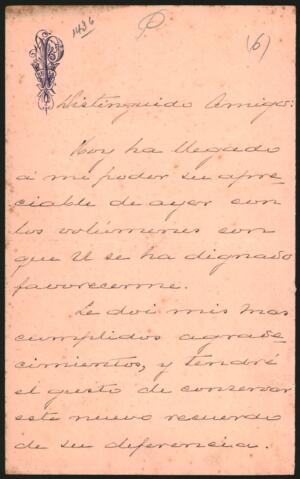 1436
(6)
Distinguido Amigo:
Hoy ha llegado
á mi poder su apre-
ciable de ayer con
los volúmenes con
que U se ha dignado
favorecerme.
Le doi mis mas
cumplidos agrade-
cimientos, y tendré
el gusto de conservar
este nuevo recuerdo
de su diferencia.